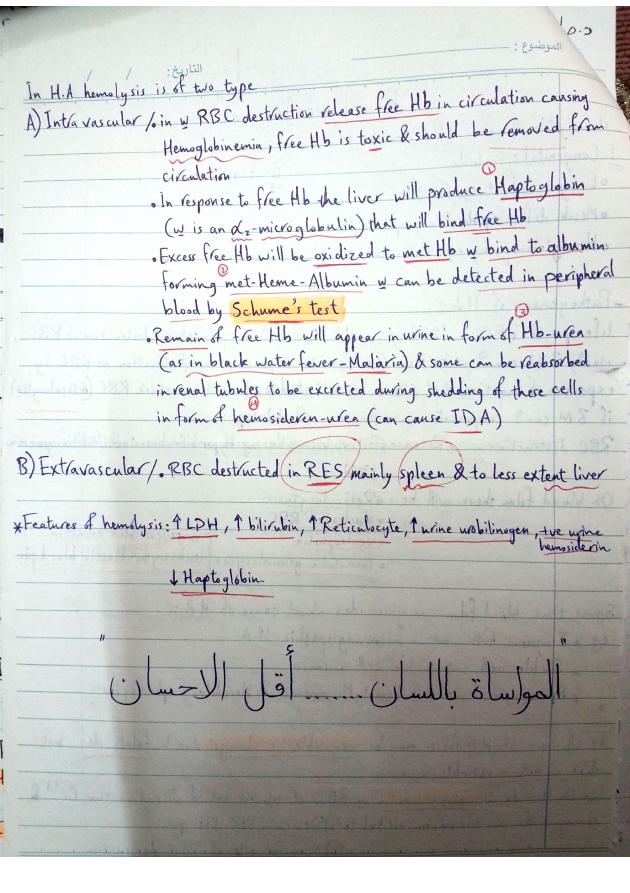 د.ه
الموضوع :
التاريخ:
In H.A hemolysis is of two type
A) Intravascular/. in w RBC destruction release free Hb in circulation causing
Hemoglobinemia, free Hb is toxic & should be removed from
circulation
. In response to free Hb the liver will produce ① Haptoglobin
(w is an α₂-microglobulin) that will bind free Hb
. Excess free Hb will be oxidized to met Hb w bind to albumin
forming ② met-Heme-Albumin w can be detected in peripheral
blood by Schume's test
. Remain of free Hb will appear in urine in form of ③ Hb-urea
(as in black water fever-Malaria) & some can be reabsorbed
in renal tubules to be excreted during shedding of these cells
in form of ④ hemosideren-urea (can cause IDA)
B) Extravascular/. RBC destructed in RES mainly spleen & to less extent liver
*Features of hemolysis: ↑ LDH, ↑ bilirubin, ↑ Reticulocyte, ↑ urine urobilinogen, +ve urine
hemosiderin
↓ Haptoglobin
"المواساة باللسان ....... أقل الاحسان"